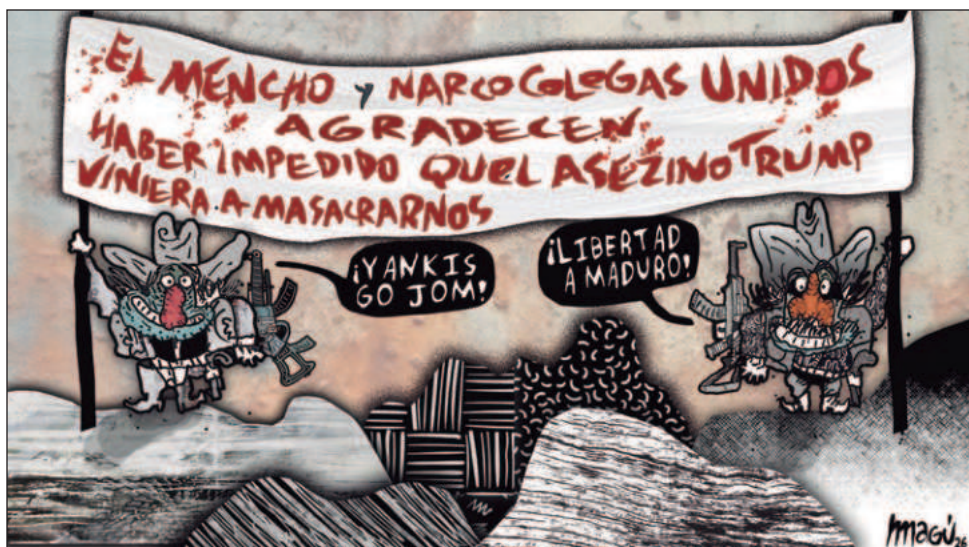 EL MENCHO y NARCOCOLEGAS UNIDOS
AGRADECEN
HABER IMPEDIDO QUEL ASEZINO TRUMP
VINIERA A MASACRARNOS
¡YANKIS
GO JOM!
¡LIBERTAD
A MADURO!
Magú 26